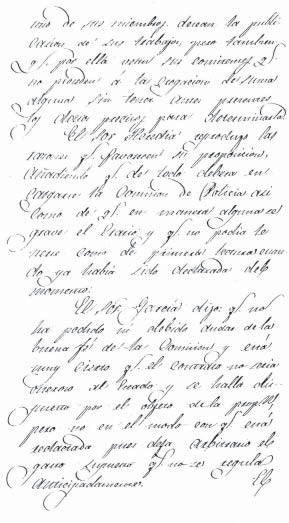 uno de sus miembros desean la publi-
cacion de sus trabajos, pero tambien
qe. por ella votan sus comisiones y qe.
no proceden á la erogacion de suma
alguna sin tener antes presentes
los datos precisos para determinarla.
El Sor. Heredia reprodujo las
razones qe. favorecen su proposicion,
añadiendo qe. de todo debera en-
cargarse la Comision de Policia asi
como de qe. en manera alguna se
grave el Erario y qe. no podia te-
nerse como de primera lectura cuan-
do ya habia sido declarada del
momento.
El Sor. Garcia dijo: qe. no
ha podido ni debido dudar de la
buena fé de la Comision y está
muy cierto qe. el contrato no seria
oneroso al Erario y se halla dis-
puesto por el objeto de la propn.,
pero no en el modo con qe. está
redactada pues deja arbitrario el
gasto supuesto qe. no se regula
anticipadamente.
El